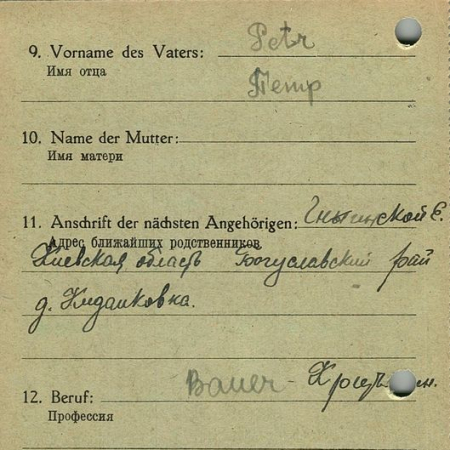 9. Vorname des Vaters: Petr
Имя отца
Петр
10. Name der Mutter:
Имя матери
11. Anschrift der nächsten Angehörigen:
Адрес ближайших родственников
Киевская область Богуславский рай
д.
12. Beruf: Bauer -
Профессия